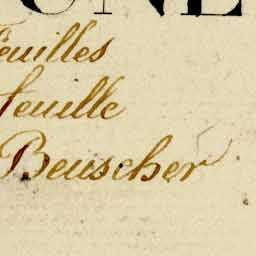 UNE
Feuilles
feuille
Beuscher